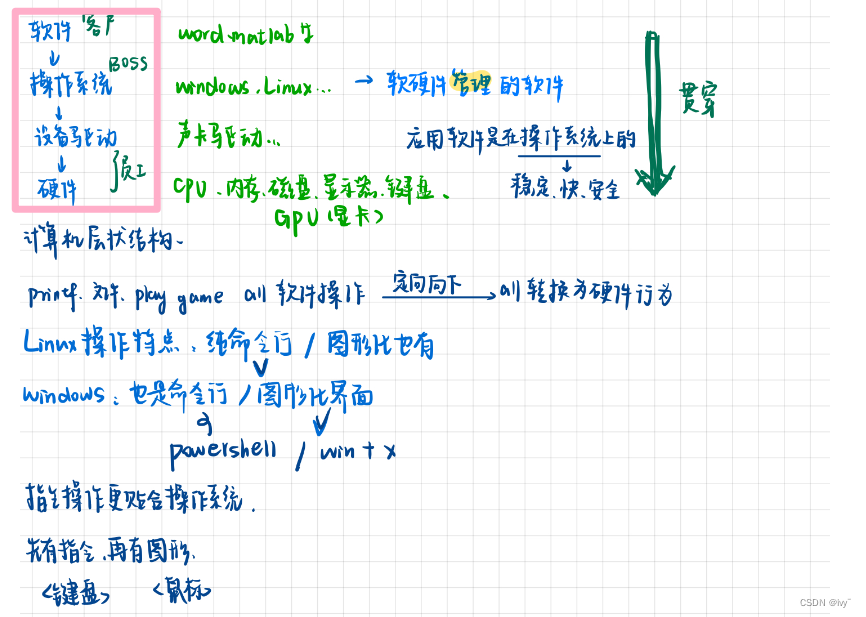 软件 客户 word.matlab等
操作系统 BOSS windows.Linux... → 软硬件管理的软件
贯穿
设备驱动 声卡驱动... 应用软件是在操作系统上的
硬件 员工 CPU、内存、磁盘、显示器、键盘、 稳定、快、安全
GPU(显卡)
计算机层状结构、
printf、文件、play game all 软件操作 定向向下 all 转换为硬件行为
Linux操作特点:纯命令行 / 图形化也有
windows:也是命令行 / 图形化界面
powershell / win + x
指令操作更贴合操作系统.
先有指令、再有图形、
<键盘> <鼠标>
CSDN @ivy~